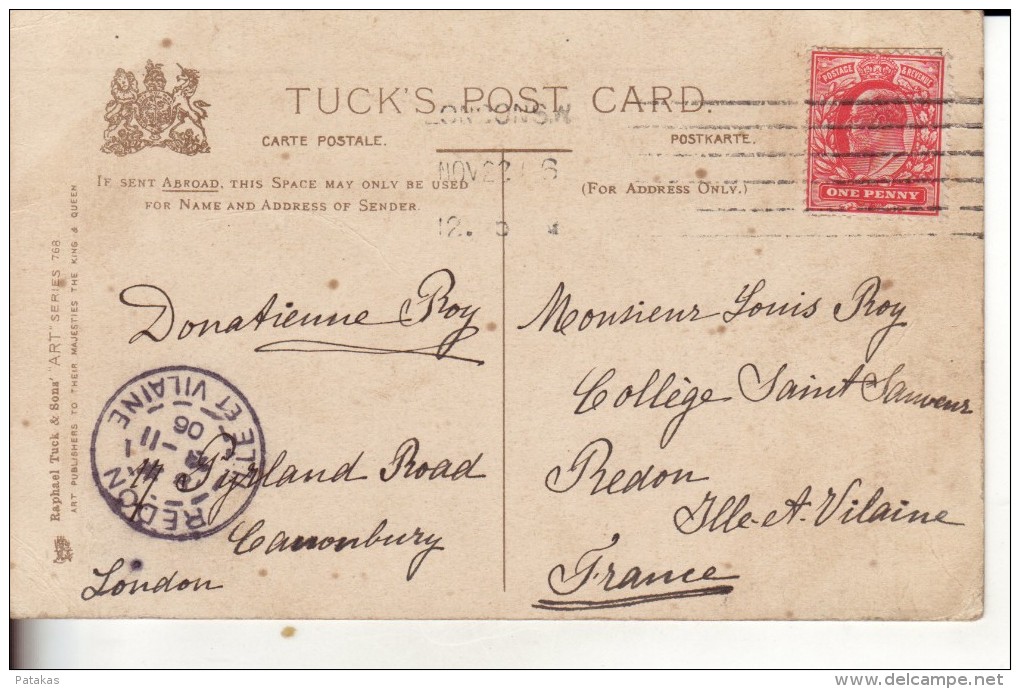 TUCK'S POST CARD.
CARTE POSTALE.
POSTKARTE.
IF SENT ABROAD, THIS SPACE MAY ONLY BE USED
FOR NAME AND ADDRESS OF SENDER
(FOR ADDRESS ONLY.)
POSTAGE & REVENUE
ONE PENNY
LONDON S.W
NOV 22
12.
Raphael Tuck & Sons' "ART" SERIES 768
ART PUBLISHERS TO THEIR MAJESTIES THE KING & QUEEN
Donatienne Roy
Pyrland Road
Canonbury
London
REDON
ILLE ET VILAINE
11
06
Monsieur Louis Roy
Collège Saint Sauveur
Redon
Ille-A-Vilaine
France
Patakas
www.delcampe.net